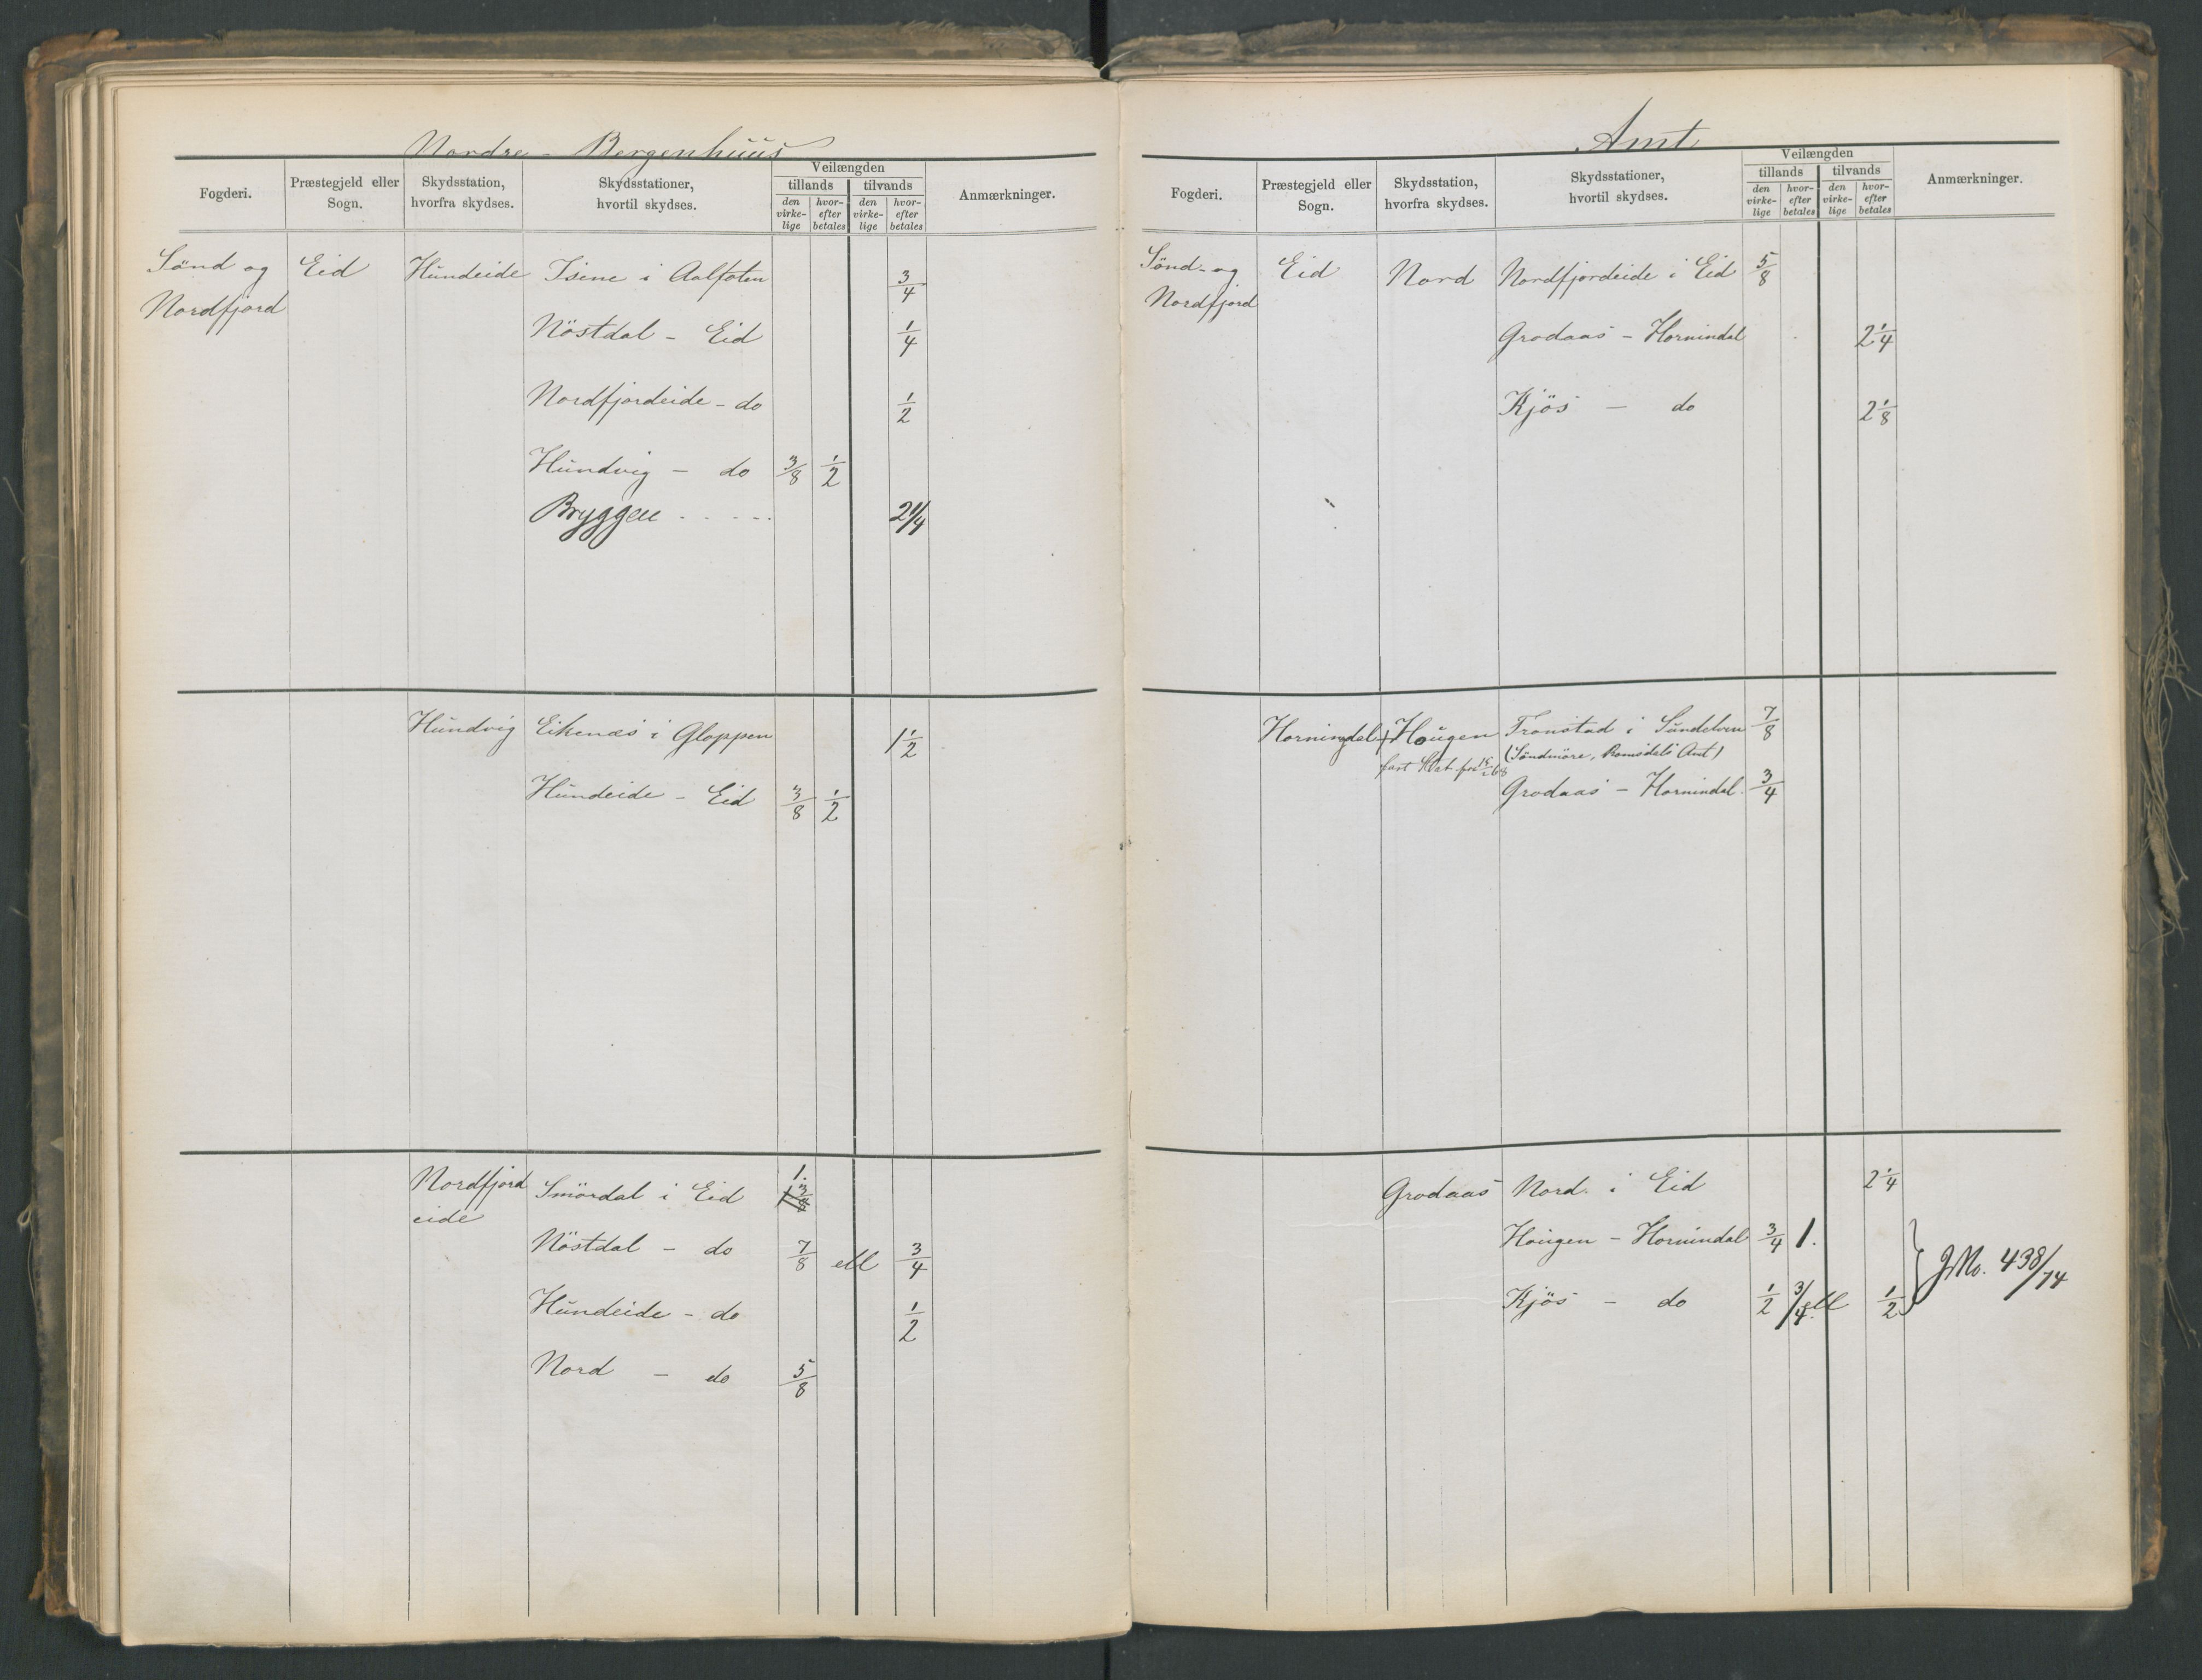 Nordre - Bergenhuus
Fogderi.
Præstegjeld eller Sogn.
Skydsstation, hvorfra skydses.
Skydsstationer, hvortil skydses.
Veilængden
tillands
tilvands
den virke-lige
hvor-efter betales
den virke-lige
hvor-efter betales
Anmærkninger.
Sönd og Nordfjord Eid Hundeide Isene i Aalfoten 3/4
Nöstdal - Eid 1/4
Nordfjordeide - do 1/2
Hundvig - do 3/8 1/2
Bryggen - - - - - 2 1/4
Hundvig Eikenæs i Gloppen 1 1/2
Hundeide - Eid 3/8 1/2
Nordfjord Smördal i Eid 1.
eide
Nöstdal - do 7/8 ell 3/4
Hundeide - do 1/2
Nord - do 5/8
Amt
Fogderi.
Præstegjeld eller Sogn.
Skydsstation, hvorfra skydses.
Skydsstationer, hvortil skydses.
Veilængden
tillands
tilvands
den virke-lige
hvor-efter betales
den virke-lige
hvor-efter betales
Anmærkninger.
Sönd- og Nordfjord Eid Nord Nordfjordeide i Eid 5/8
Grodaas - Hornindal 2 1/4
Kjös - do 2 1/8
Hornindal Hougen Tronstad i Sundelven 7/8
(Söndmöre, Romsdals Amt)
fast
Grodaas - Hornindal 3/4
Grodaas Nord i Eid 2 1/4
Hougen - Hornindal 3/4 1.
Kjös - do 1/2 3/4 ell 1/2
JNo. 438/74